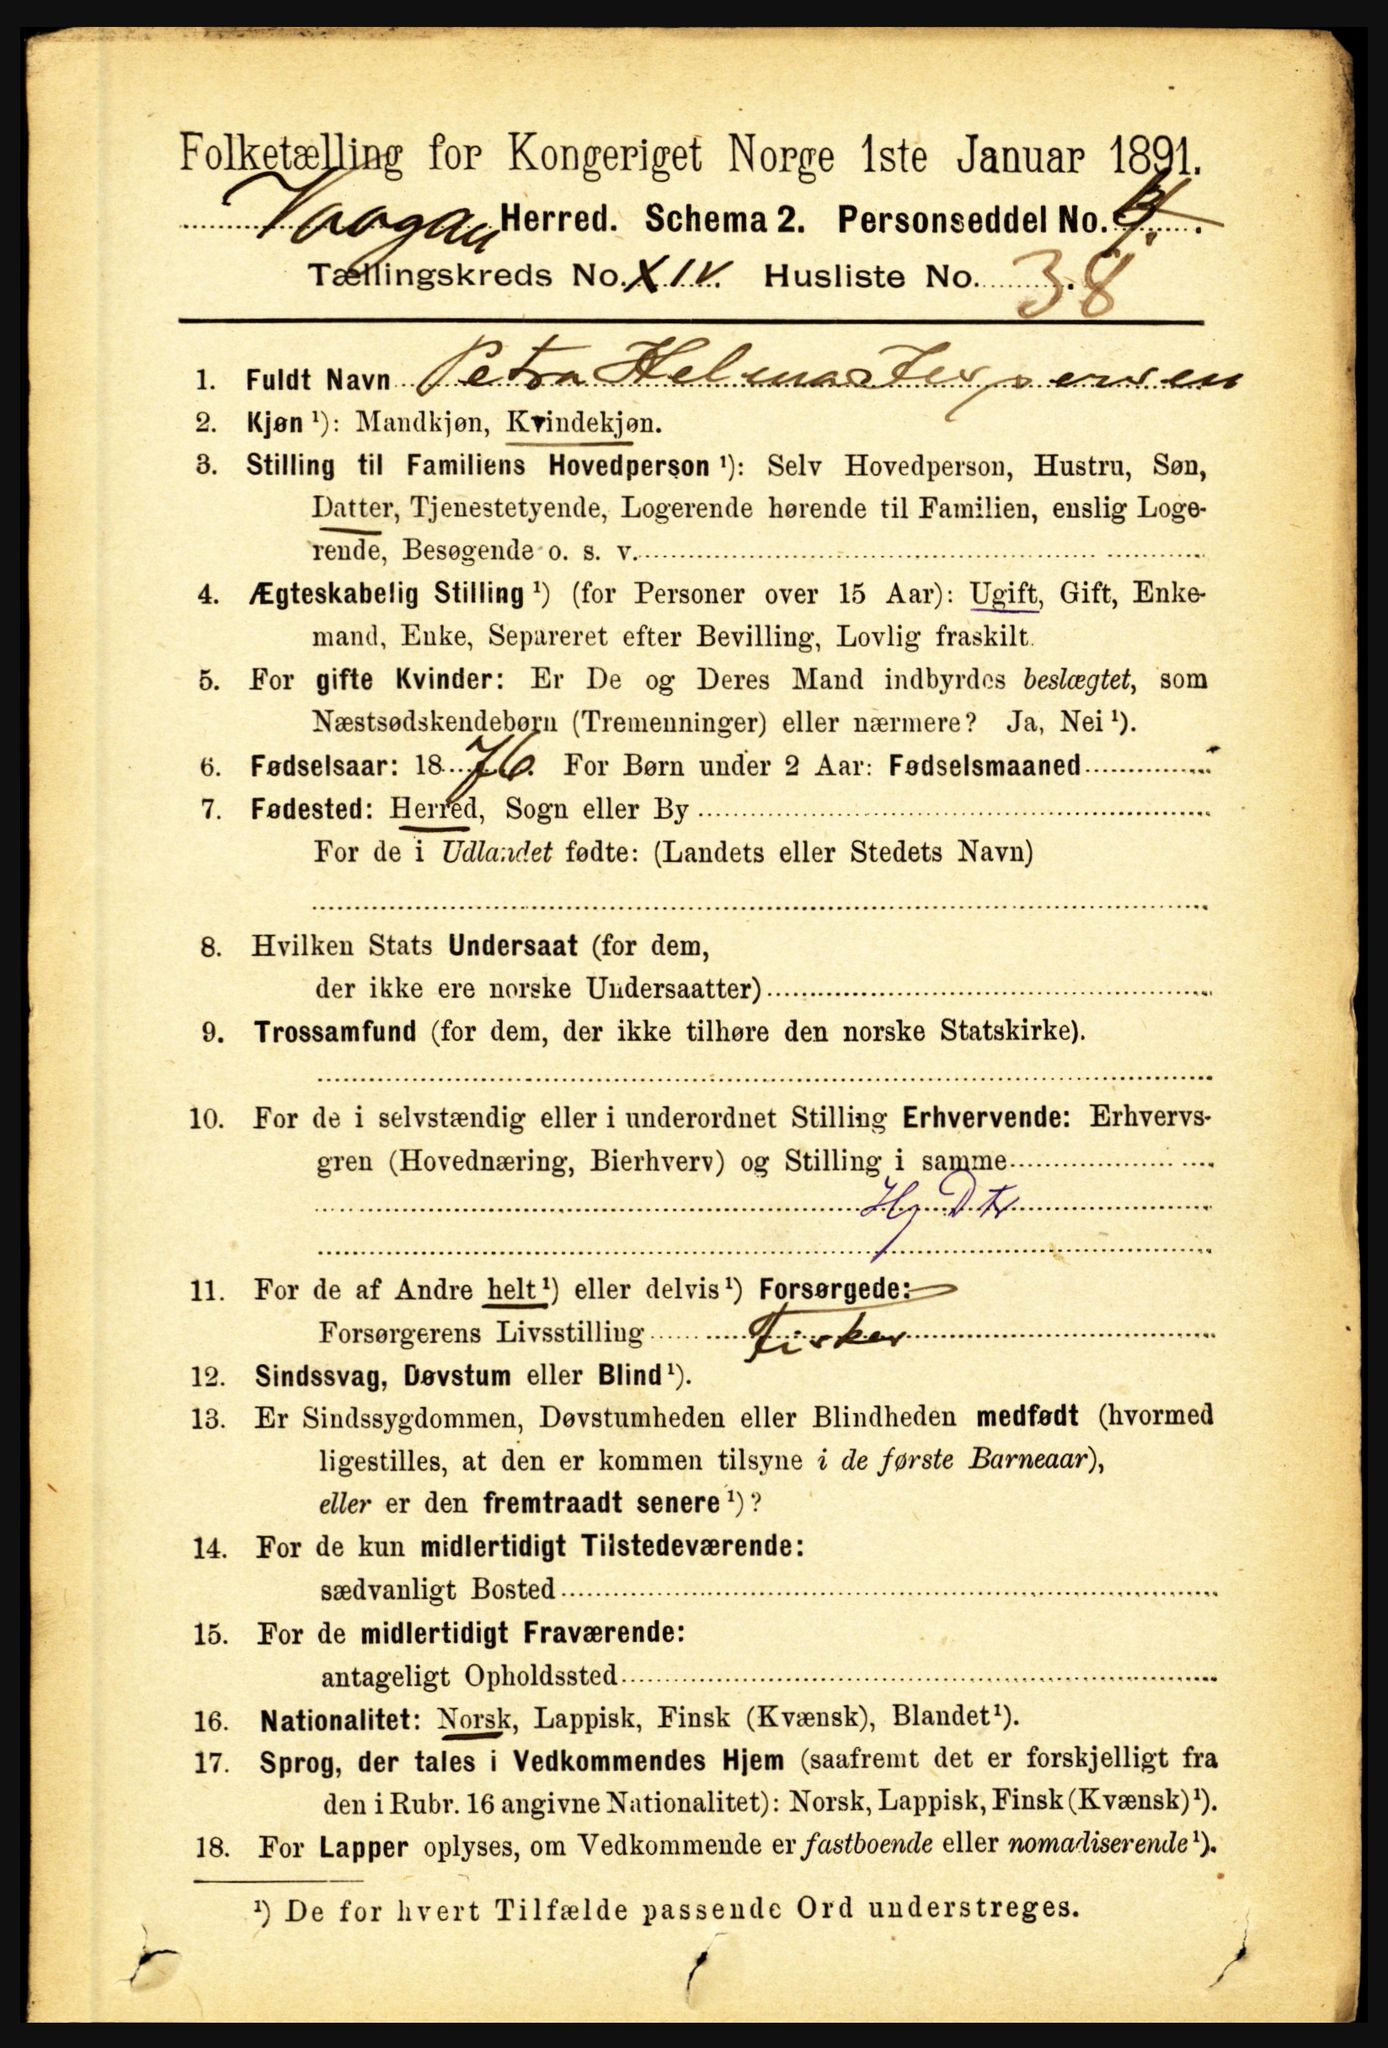 Folketælling for Kongeriget Norge 1ste Januar 1891.
Vaagan Herred. Schema 2. Personseddel No. 4.
Tællingskreds No. XIV. Husliste No. 38.
1. Fuldt Navn Petra Helma
2. Kjøn ¹): Mandkjøn, Kvindekjøn.
3. Stilling til Familiens Hovedperson ¹): Selv Hovedperson, Hustru, Søn,
Datter, Tjenestetyende, Logerende hørende til Familien, enslig Loge-
rende, Besøgende o. s. v.
4. Ægteskabelig Stilling ¹) (for Personer over 15 Aar): Ugift, Gift, Enke-
mand, Enke, Separeret efter Bevilling, Lovlig fraskilt.
5. For gifte Kvinder: Er De og Deres Mand indbyrdes beslægtet, som
Næstsødskendebørn (Tremenninger) eller nærmere? Ja, Nei ¹).
6. Fødselsaar: 1876. For Børn under 2 Aar: Fødselsmaaned
7. Fødested: Herred, Sogn eller By
For de i Udlandet fødte: (Landets eller Stedets Navn)
8. Hvilken Stats Undersaat (for dem,
der ikke ere norske Undersaatter)
9. Trossamfund (for dem, der ikke tilhøre den norske Statskirke).
10. For de i selvstændig eller i underordnet Stilling Erhvervende: Erhvervs-
gren (Hovednæring, Bierhverv) og Stilling i samme
Hj D tr
11. For de af Andre helt ¹) eller delvis ¹) Forsørgede:
Forsørgerens Livsstilling Fisker
12. Sindssvag, Døvstum eller Blind ¹).
13. Er Sindssygdommen, Døvstumheden eller Blindheden medfødt (hvormed
ligestilles, at den er kommen tilsyne i de første Barneaar),
eller er den fremtraadt senere ¹)?
14. For de kun midlertidigt Tilstedeværende:
sædvanligt Bosted
15. For de midlertidigt Fraværende:
antageligt Opholdssted
16. Nationalitet: Norsk, Lappisk, Finsk (Kvænsk), Blandet ¹).
17. Sprog, der tales i Vedkommendes Hjem (saafremt det er forskjelligt fra
den i Rubr. 16 angivne Nationalitet): Norsk, Lappisk, Finsk (Kvænsk) ¹).
18. For Lapper oplyses, om Vedkommende er fastboende eller nomadiserende ¹).
¹) De for hvert Tilfælde passende Ord understreges.